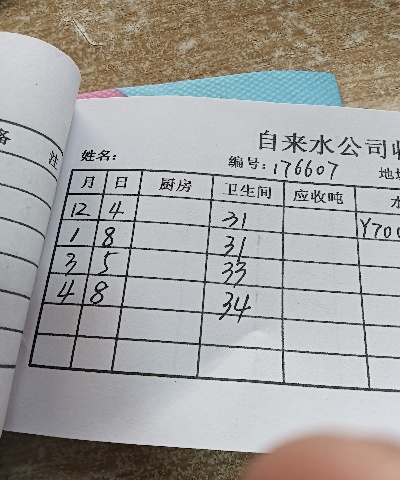 备 注
自来水公司收
姓名: 编号: 176607 地址
月 日 厨房 卫生间 应收吨 水
12 4 31 Y700
1 8 31
3 5 33
4 8 34